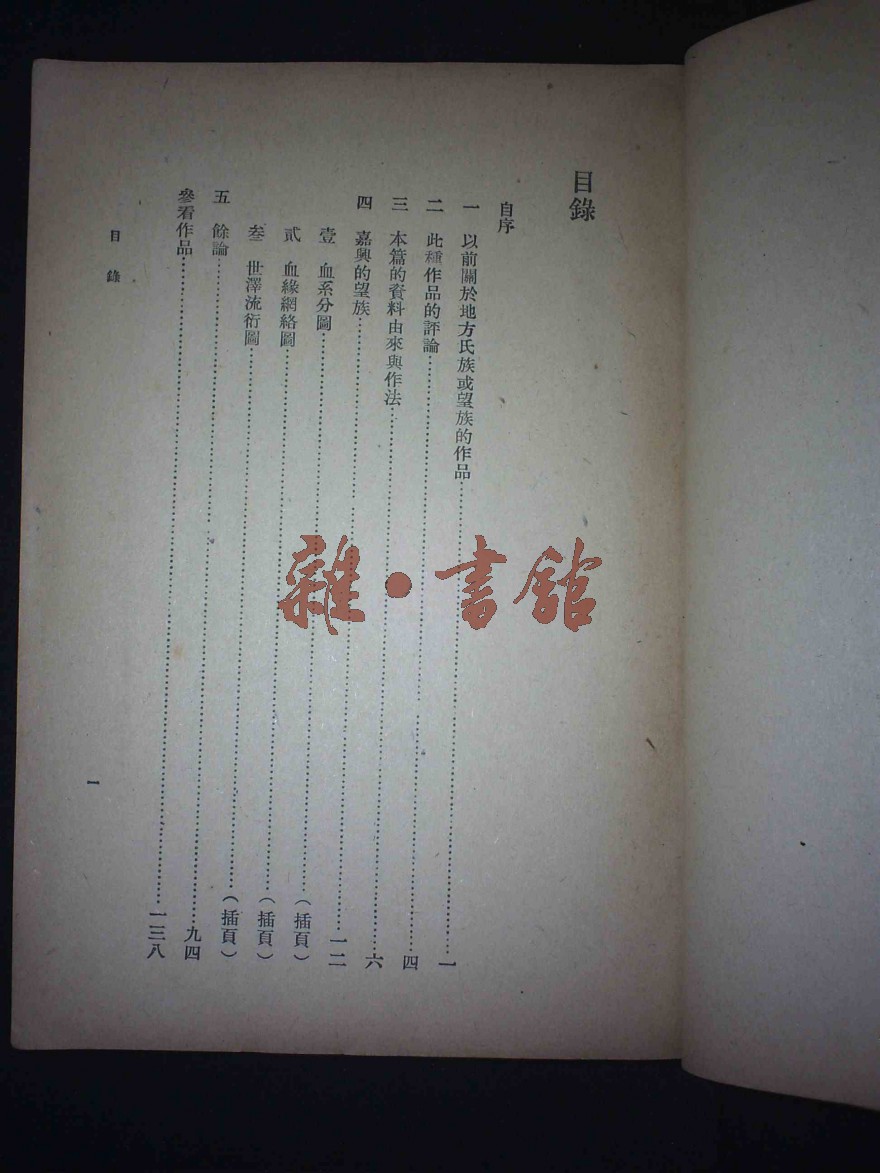 目錄
自序
一　以前關於地方氏族或望族的作品……一
二　此種作品的評論……四
三　本篇的資料由來與作法……六
四　嘉興的望族……一二
壹　血系分圖……（插頁）
貳　血緣網絡圖……（插頁）
叁　世澤流衍圖……（插頁）
五　餘論……九四
參看作品……一三八
目錄
一
雜·書館